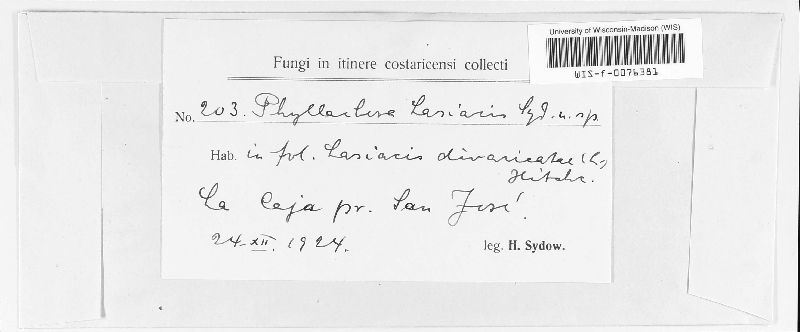 University of Wisconsin-Madison (WIS)
WIS-f-0076381
Fungi in itinere costaricensi collecti
No. 203. Phyllachora Lasiacis Syd. n. sp.
Hab. in fol. Lasiacis divaricatae (L.)
Hitchc.
La Caja pr. San José.
24.XII. 1924.
leg. H. Sydow.